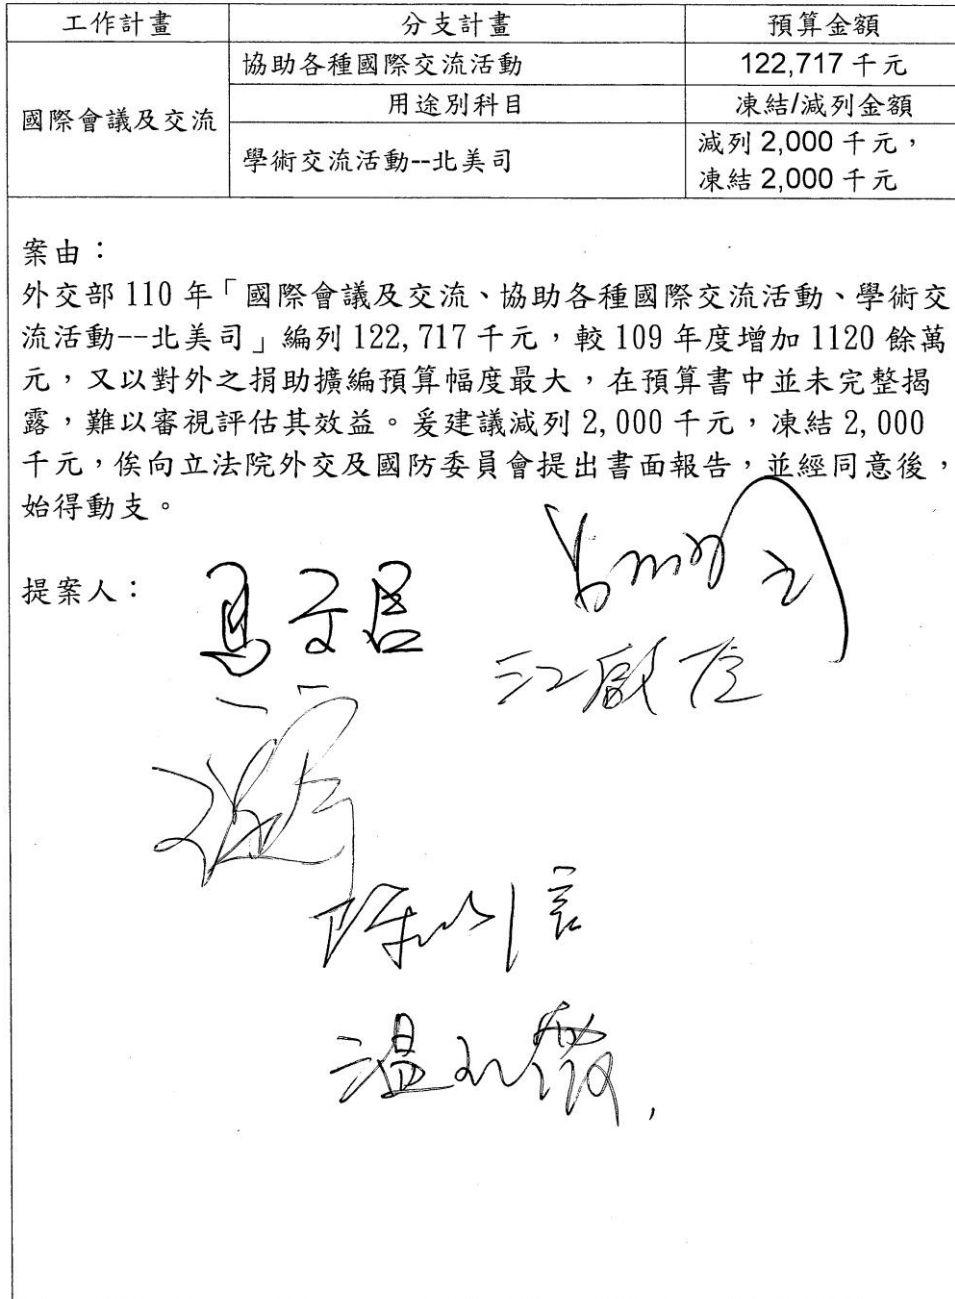 工作計畫 分支計畫 預算金額
國際會議及交流 協助各種國際交流活動 122,717 千元
用途別科目 凍結/減列金額
學術交流活動--北美司 減列 2,000 千元，
凍結 2,000 千元
案由：
外交部 110 年「國際會議及交流、協助各種國際交流活動、學術交
流活動--北美司」編列 122,717 千元，較 109 年度增加 1120 餘萬
元，又以對外之捐助擴編預算幅度最大，在預算書中並未完整揭
露，難以審視評估其效益。爰建議減列 2,000 千元，凍結 2,000
千元，俟向立法院外交及國防委員會提出書面報告，並經同意後，
始得動支。
提案人：
馬文君
江啟臣
溫玉霞